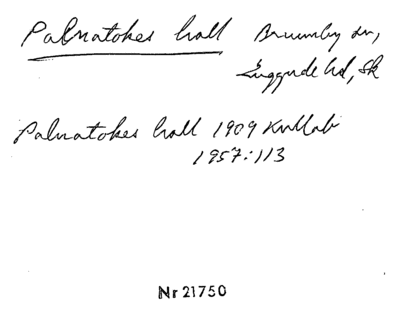 Palnatokes hall Brunnby sn,
Luggude hd, Sk
Palnatokes hall 1909 Kullab
1957:113
Nr 21750